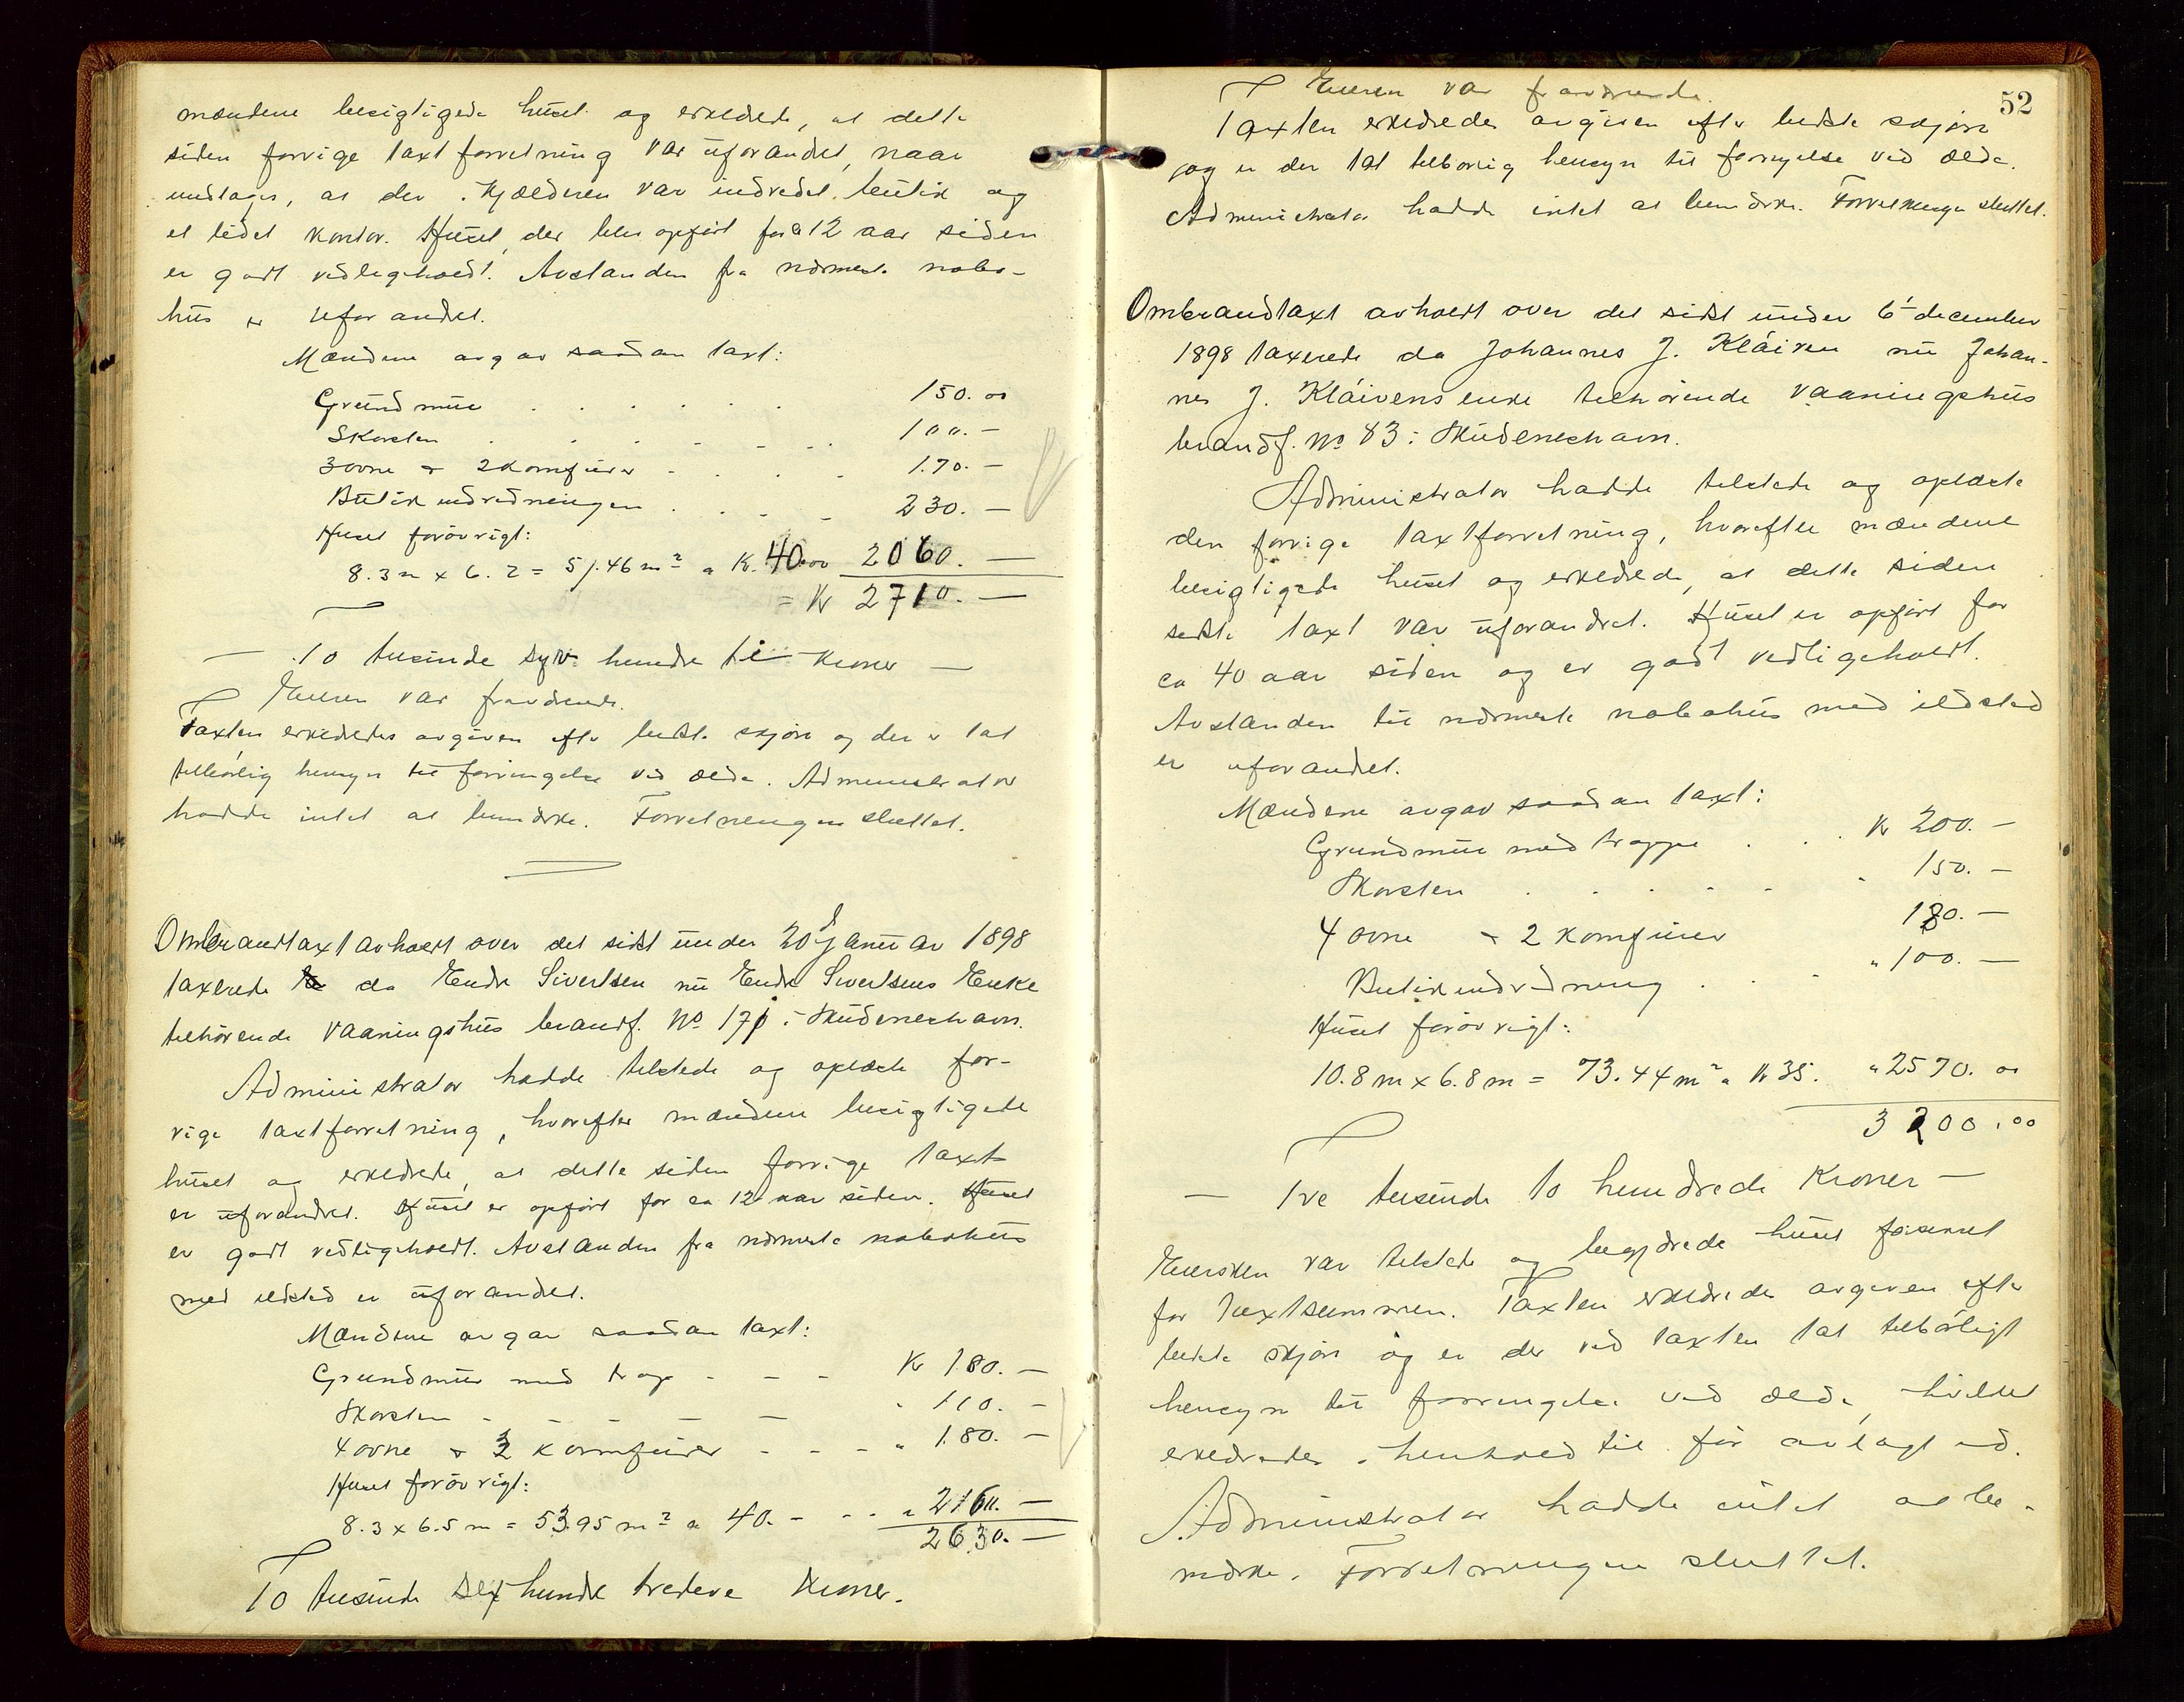 mændene besigtigede huset og erklærede, at dette
siden forrige taxtforretning var uforandret, naar
undtages, at der i Kjælderen var indredet butik og
et lidet kontor. Huset, der blev opført for ca 12 aar siden
er godt vedligeholdt. Avstanden fra nærmeste nabo-
hus er uforandret.
Mændene avgav saadan taxt:
Grundmur . . . . . . 150.00
Skorsten . . . . . . 100.—
3 ovne & 2 komfurer . . . . 170.—
Butikindredningen . . . . 230.—
Huset forøvrigt:
8.3 m x 6.2 = 51.46 m² a Kr. 40.00 2060.—
= Kr 2710.—
— To tusinde syv hundre ti Kroner —
Eieren var fraværende.
Taxten erklæredes avgiven efter bedste skjøn og der er tat
tilbørlig hensyn til forringelse ved ælde. Administrator
hadde intet at bemærke. Forretningen sluttet.
Ombrandtaxt avholdt over det sidst under 20de Januar 1898
taxerede da Endre Sivertsen nu Endre Sivertsens Enke
tilhørende vaaningshus brandf. No 171 i Skudeneshavn.
Administrator hadde tilstede og oplæste for-
rige taxtforretning, hvorefter mændene besigtigede
huset og erklærede, at dette siden forrige taxt
er uforandret. Huset er opført for ca 12 aar siden. Huset
er godt vedligeholdt. Avstanden fra nærmeste nabohus
med ildsted er uforandret.
Mændene avgav saadan taxt:
Grundmur med trap - - - Kr 180.—
Skorsten - - - - - " 110.—
4 ovne & 2 komfurer - - - " 180.—
Huset forøvrigt:
8.3 x 6.5 m = 53.95 m² a 40.- - - " 2160.—
2630.—
To tusinde sex hundre tredeve Kroner.
52
Eieren var fraværende.
Taxten erklæredes avgiven efter bedste skjøn
og er der tat tilbørlig hensyn til forringelse ved ælde.
Administrator hadde intet at bemærke. Forretningen sluttet.
Ombrandtaxt avholdt over det sidst under 6te december
1898 taxerede da Johannes J. Kláiven nu Johan-
nes J. Kláivens enke tilhørende vaaningshus
brandf. No 83 i Skudeneshavn.
Administrator hadde tilstede og oplæste
den forrige taxtforretning, hvorefter mændene
besigtigede huset og erklærede, at dette siden
sidste taxt var uforandret. Huset er opført for
ca 40 aar siden og er godt vedligeholdt.
Avstanden til nærmeste nabohus med ildsted
er uforandret.
Mændene avgav saadan taxt:
Grundmur med trappe . . . Kr 200.—
Skorsten . . . . . . 150.—
4 ovne & 2 komfurer 180.—
Butikindredning . . . " 100.—
Huset forøvrigt:
10.8 m x 6.8 m = 73.44 m² a Kr 35. " 2570.00
3200.00
— Tre tusinde to hundrede Kroner —
Eiersken var tilstede og begjærede huset forsikret
for taxtsummen. Taxten erklæredes avgiven efter
bedste skjøn og er der ved taxten tat tilbørligt
hensyn til forringelse ved ælde, hvilket
erklæredes i henhold til før avlagt ed.
Administrator hadde intet at be-
mærke. Forretningen sluttet.